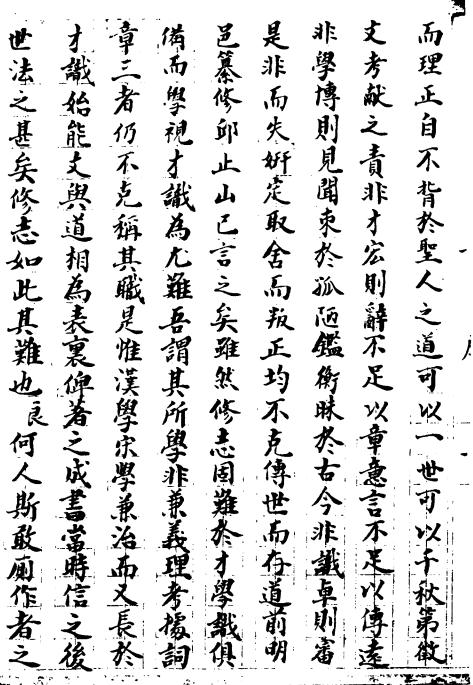 而理正自不背於聖人之道可以一世可以千秋第徵
文考献之責非才宏則辭不足以章意言不足以傳遠
非學博則見聞束於孤陋鑑衡昧於古今非識卓則審
是非而失姸定取舍而叛正均不克傳世而存道前明
邑纂修邱止山已言之矣雖然修志固難於才學識俱
備而學視才識為尤難吾謂其所學非兼義理考據詞
章三者仍不克稱其職是惟漢學宋學兼治而又長於
才識始能文與道相為表裏俾著之成書當時信之後
世法之甚矣修志如此其難也良何人斯敢厠作者之